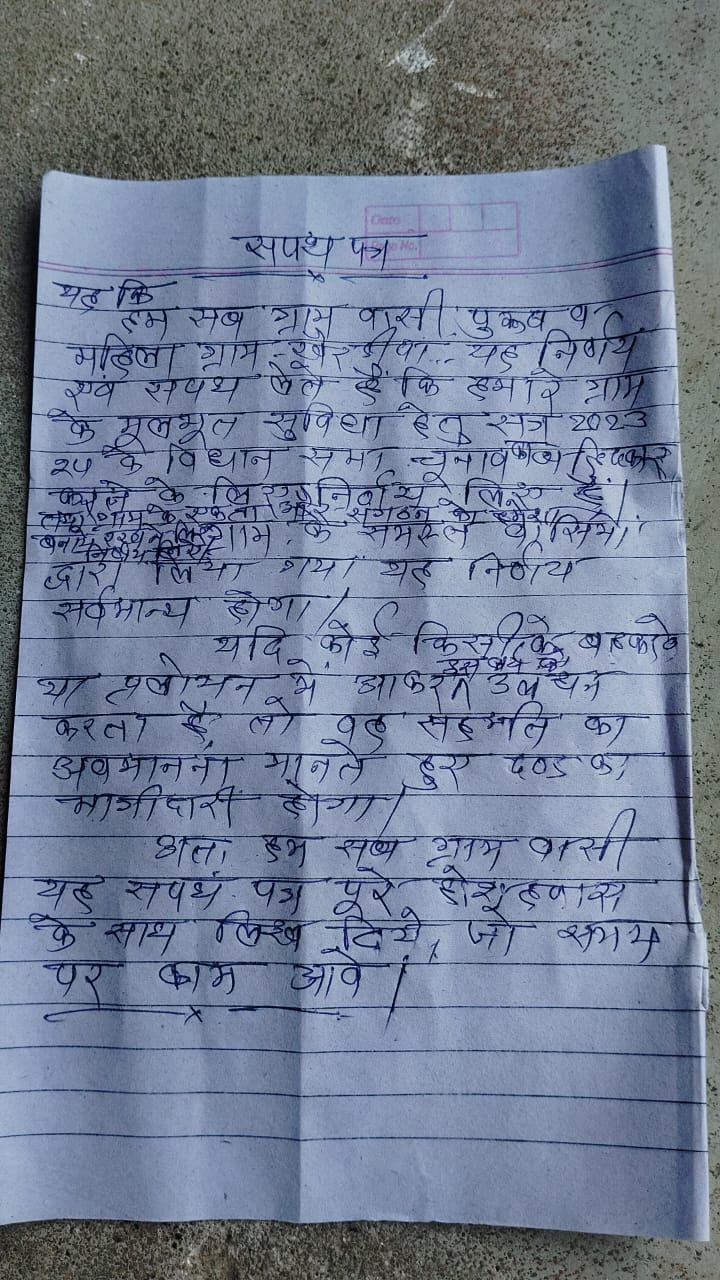 Date
No.
सपथ पत्र
यह कि
हम सब ग्राम वासी पुरूष व
महिला ग्राम - यह निर्णय
एवं सपथ लेते हैं कि हमारे ग्राम
के मूलभूत सुविधा हेतु सत्र 2023
24 के विधान सभा चुनाव का बहिष्कार
करने के लिए निर्णय लिए हैं।
तथा ग्राम के एकता और संगठन को हमेशा
बनाए रखने के लिए ग्राम के समस्त वासियों
निर्णय लिया
द्वारा लिया गया यह निर्णय
सर्वमान्य होगा।
यदि कोई किसी के बहकावे
या प्रलोभन में आकर इस सपथ पत्र
करता है तो वह सहमति का
अवमानना मानते हुए दण्ड का
भागीदारी होगा।
अतः हम सब ग्राम वासी
यह सपथ पत्र पूरे होश हवास
के साथ लिख दिये, जो समय
पर काम आवे।